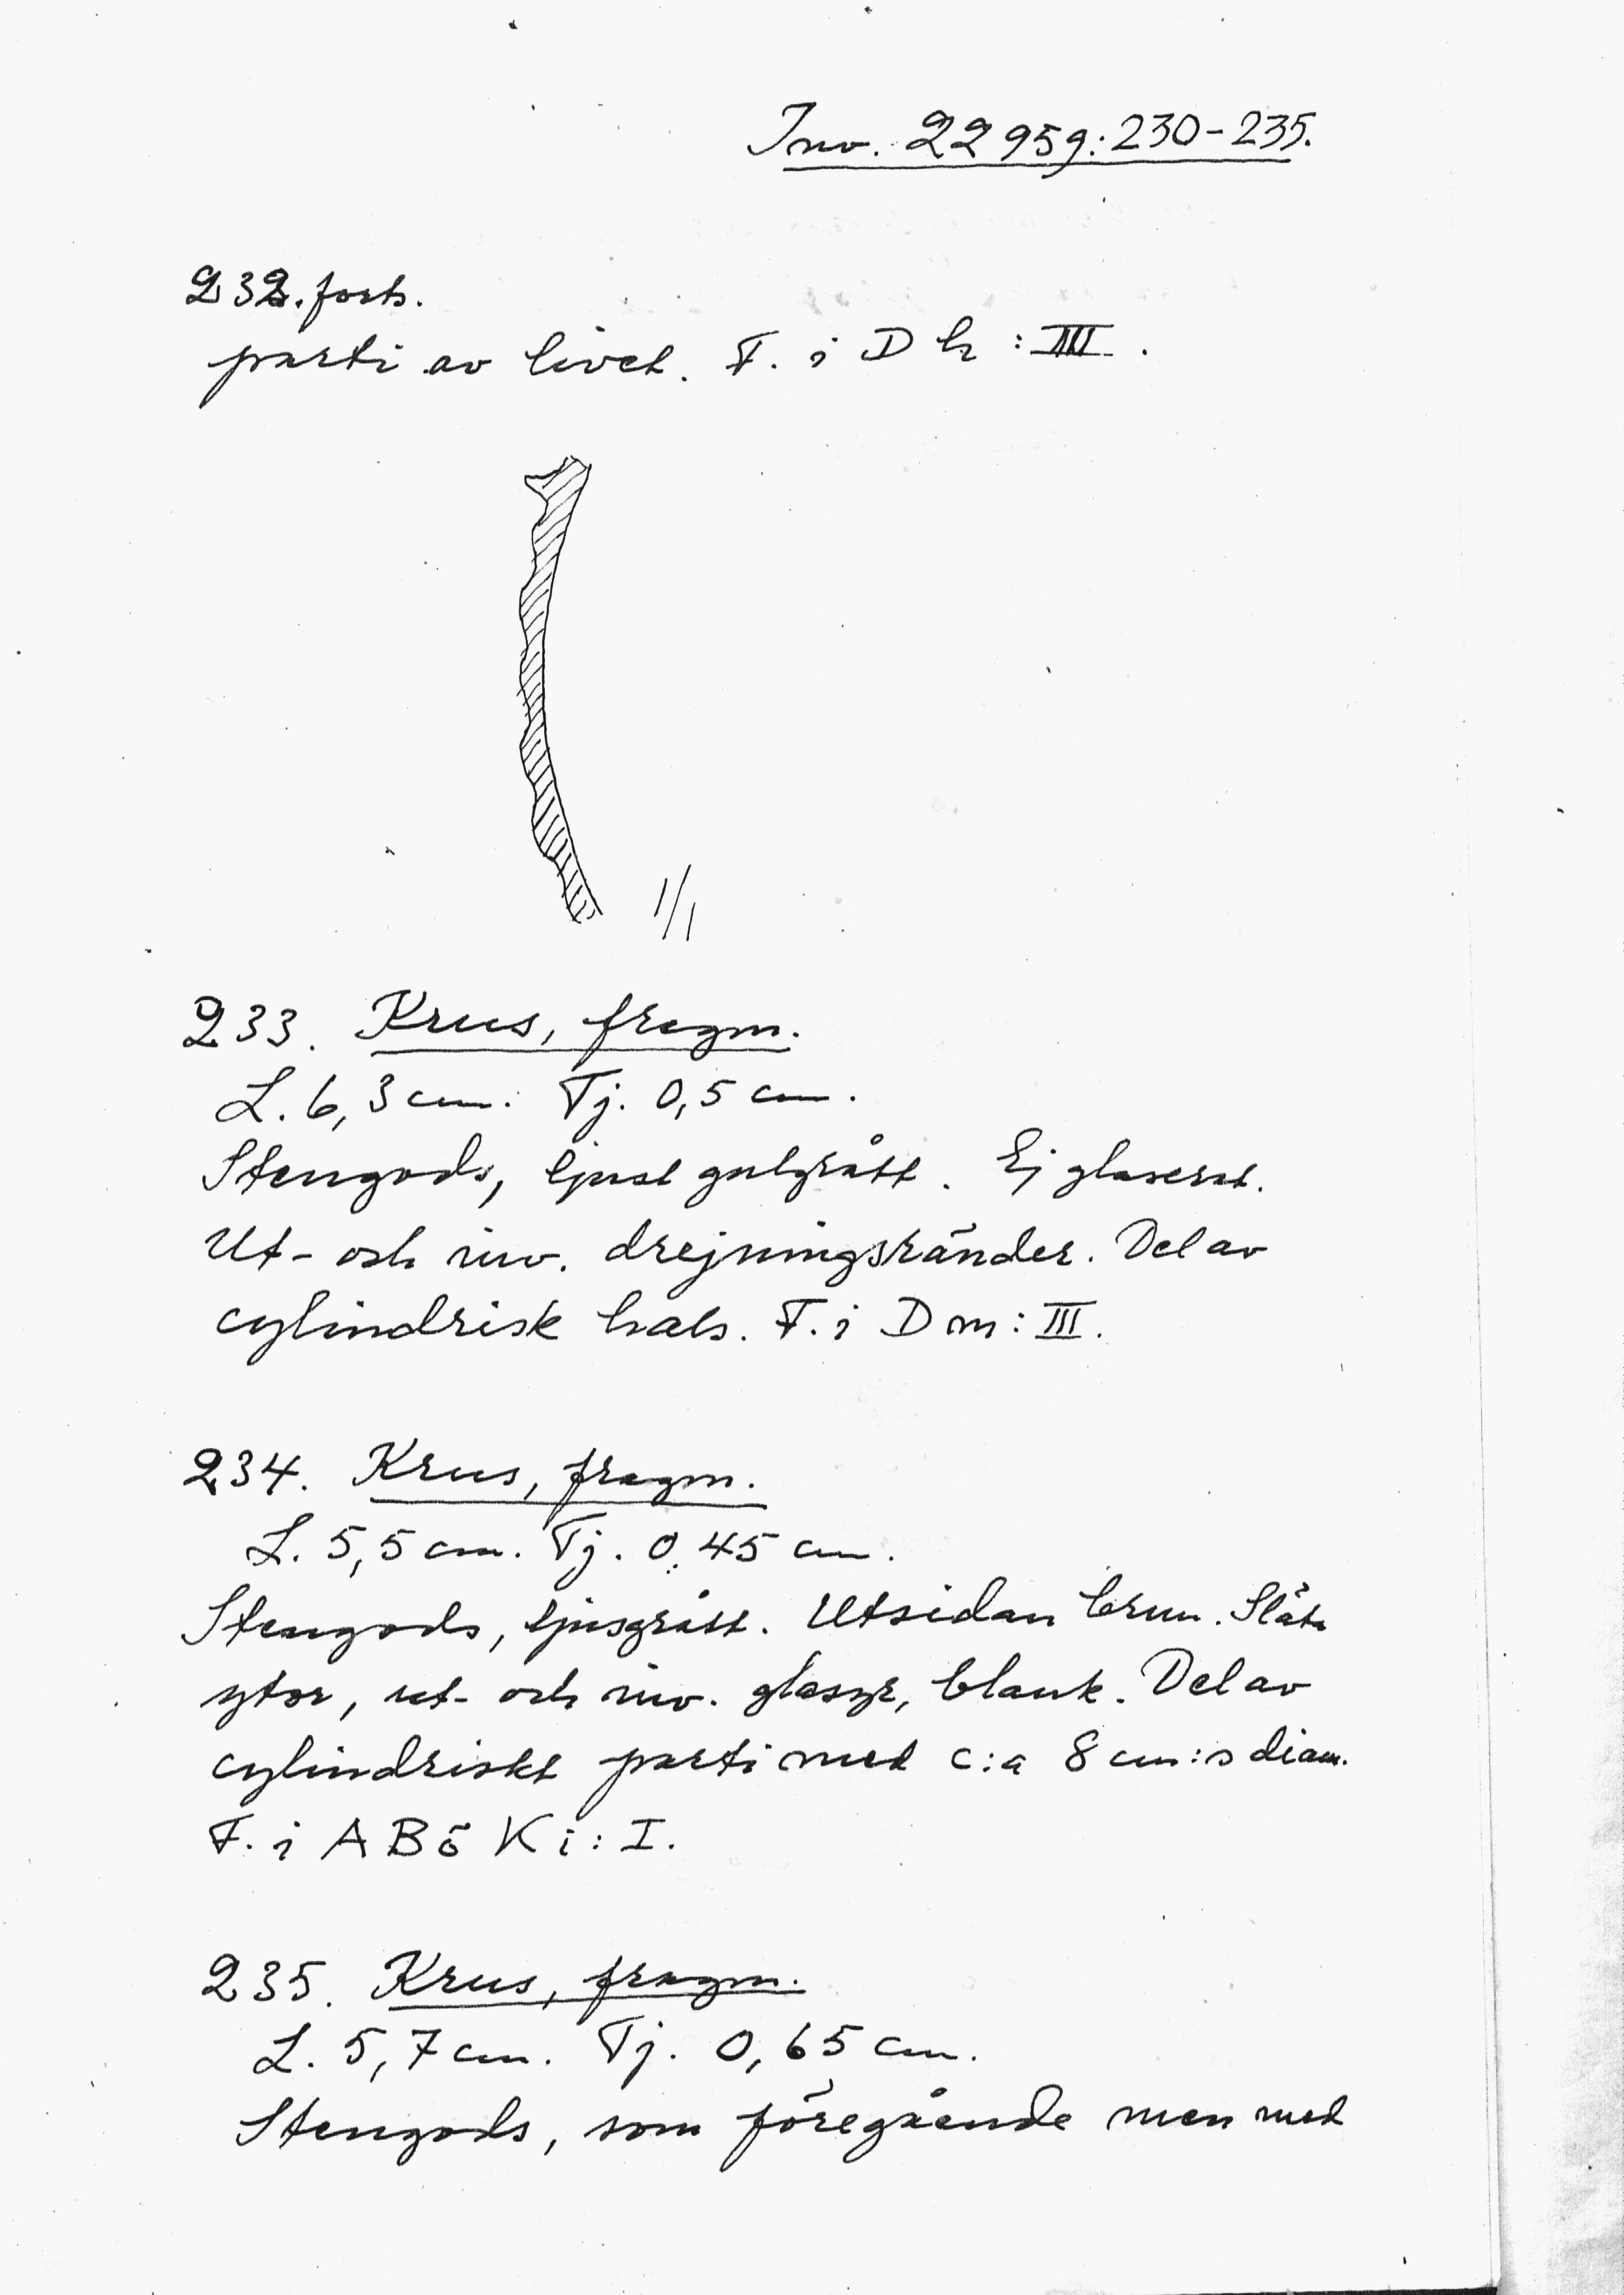 Inv. 22959:230-235.
232. forts.
parti av livet. F. i D h : III.
1/1
233. Krus, fragm.
L. 6,3 cm. Tj. 0,5 cm.
Stengods, ljust gulgrått. Ej glaserat.
Ut- och inv. drejningsränder. Del av
cylindrisk hals. F. i D m : III.
234. Krus, fragm.
L. 5,5 cm. Tj. 0,45 cm.
Stengods, ljusgrått. Utsidan brun. Släta
ytor, ut- och inv. glasyr, blank. Del av
cylindriskt parti med c:a 8 cm:s diam.
F. i A B ö K i : I.
235. Krus, fragm.
L. 5,7 cm. Tj. 0,65 cm.
Stengods, som föregående men med